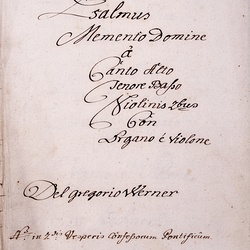 Psalmus
Memento Domine
â
Canto Alto
Tenore Basso
Violinis 2bus
Con
Organo è Violone
Del gregorio Werner
in 2dis Vesperis Confessorum Pontificum